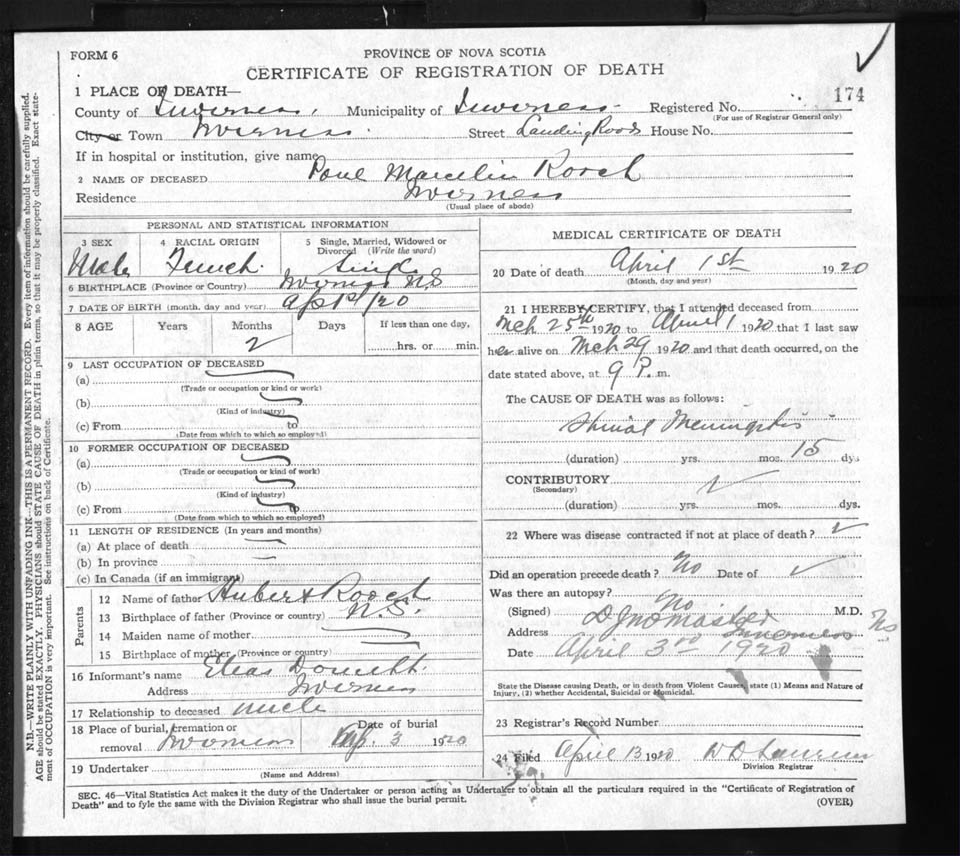 FORM 6
PROVINCE OF NOVA SCOTIA
174
CERTIFICATE OF REGISTRATION OF DEATH
1 PLACE OF DEATH—
County of Inverness. Municipality of Inverness Registered No.
(For use of Registrar General only)
City or Town Inverness. Street Landing Road House No.
If in hospital or institution, give name
2 NAME OF DECEASED Paul Marcelin Roach
Residence Inverness
(Usual place of abode)
PERSONAL AND STATISTICAL INFORMATION
3 SEX 4 RACIAL ORIGIN 5 Single, Married, Widowed or Divorced (Write the word)
Male French. Single
6 BIRTHPLACE (Province or Country) Inverness NS
7 DATE OF BIRTH (month, day and year)
8 AGE Years Months Days If less than one day,
2 hrs. or min.
9 LAST OCCUPATION OF DECEASED
(a)
(Trade or occupation or kind or work)
(b)
(Kind of industry)
(c) From to
(Date from which to which so employed)
10 FORMER OCCUPATION OF DECEASED
(a)
(Trade or occupation or kind of work)
(b)
(Kind of industry)
(c) From
(Date from which to which so employed)
11 LENGTH OF RESIDENCE (In years and months)
(a) At place of death
(b) In province
(c) In Canada (if an immigrant)
Parents
12 Name of father Hubert Roach
13 Birthplace of father (Province or country) N.S.
14 Maiden name of mother
15 Birthplace of mother (Province or country)
16 Informant's name Elias
Address Inverness
17 Relationship to deceased uncle
18 Place of burial, cremation or Date of burial
removal Inverness Ap. 3 1920
19 Undertaker
(Name and Address)
MEDICAL CERTIFICATE OF DEATH
20 Date of death April 1st 1920
(Month, day and year)
21 I HEREBY CERTIFY, that I attended deceased from
Mch 25th 1920 to April 1 1920 that I last saw
her alive on Mch 29 1920 and that death occurred, on the
date stated above, at 9 P. m.
The CAUSE OF DEATH was as follows:
Spinal Meningitis
(duration) yrs. mos. 15 dys
CONTRIBUTORY
(Secondary)
(duration) yrs. mos. dys.
22 Where was disease contracted if not at place of death?
Did an operation precede death? No Date of
Was there an autopsy? No
(Signed) M.D.
Address Inverness NS
Date April 3rd 1920
State the Disease causing Death, or in death from Violent Causes, state (1) Means and Nature of
Injury, (2) whether Accidental, Suicidal or Homicidal.
23 Registrar's Record Number
24 Filed April 13 1920
Division Registrar
SEC. 46—Vital Statistics Act makes it the duty of the Undertaker or person acting as Undertaker to obtain all the particulars required in the "Certificate of Registration of
Death" and to fyle the same with the Division Registrar who shall issue the burial permit.
(OVER)
N.B.—WRITE PLAINLY WITH UNFADING INK—THIS IS A PERMANENT RECORD. Every item of information should be carefully supplied.
AGE should be stated EXACTLY, PHYSICIANS should STATE CAUSE OF DEATH in plain terms, so that it may be properly classified. Exact state-
ment of OCCUPATION is very important. See instructions on back of Certificate.